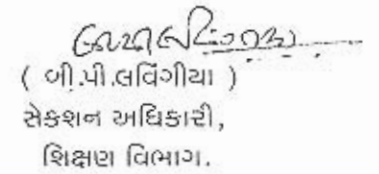 ( બી.પી.લવિંગીયા )
સેક્શન અધિકારી,
શિક્ષણ વિભાગ.